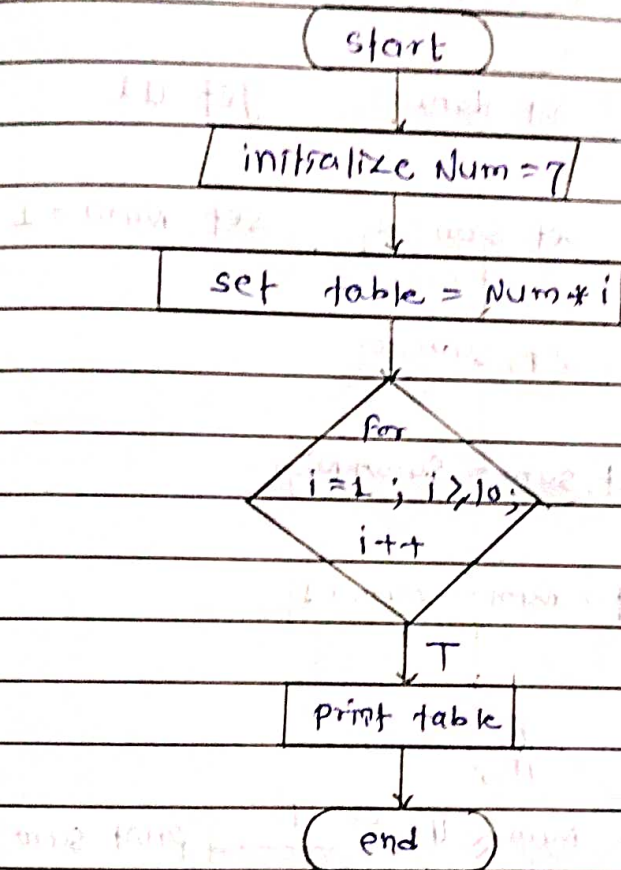 start
initialize Num = 7
set table = Num * i
for
i = 1 ; i ≥ 10 ;
i++
T
print table
end